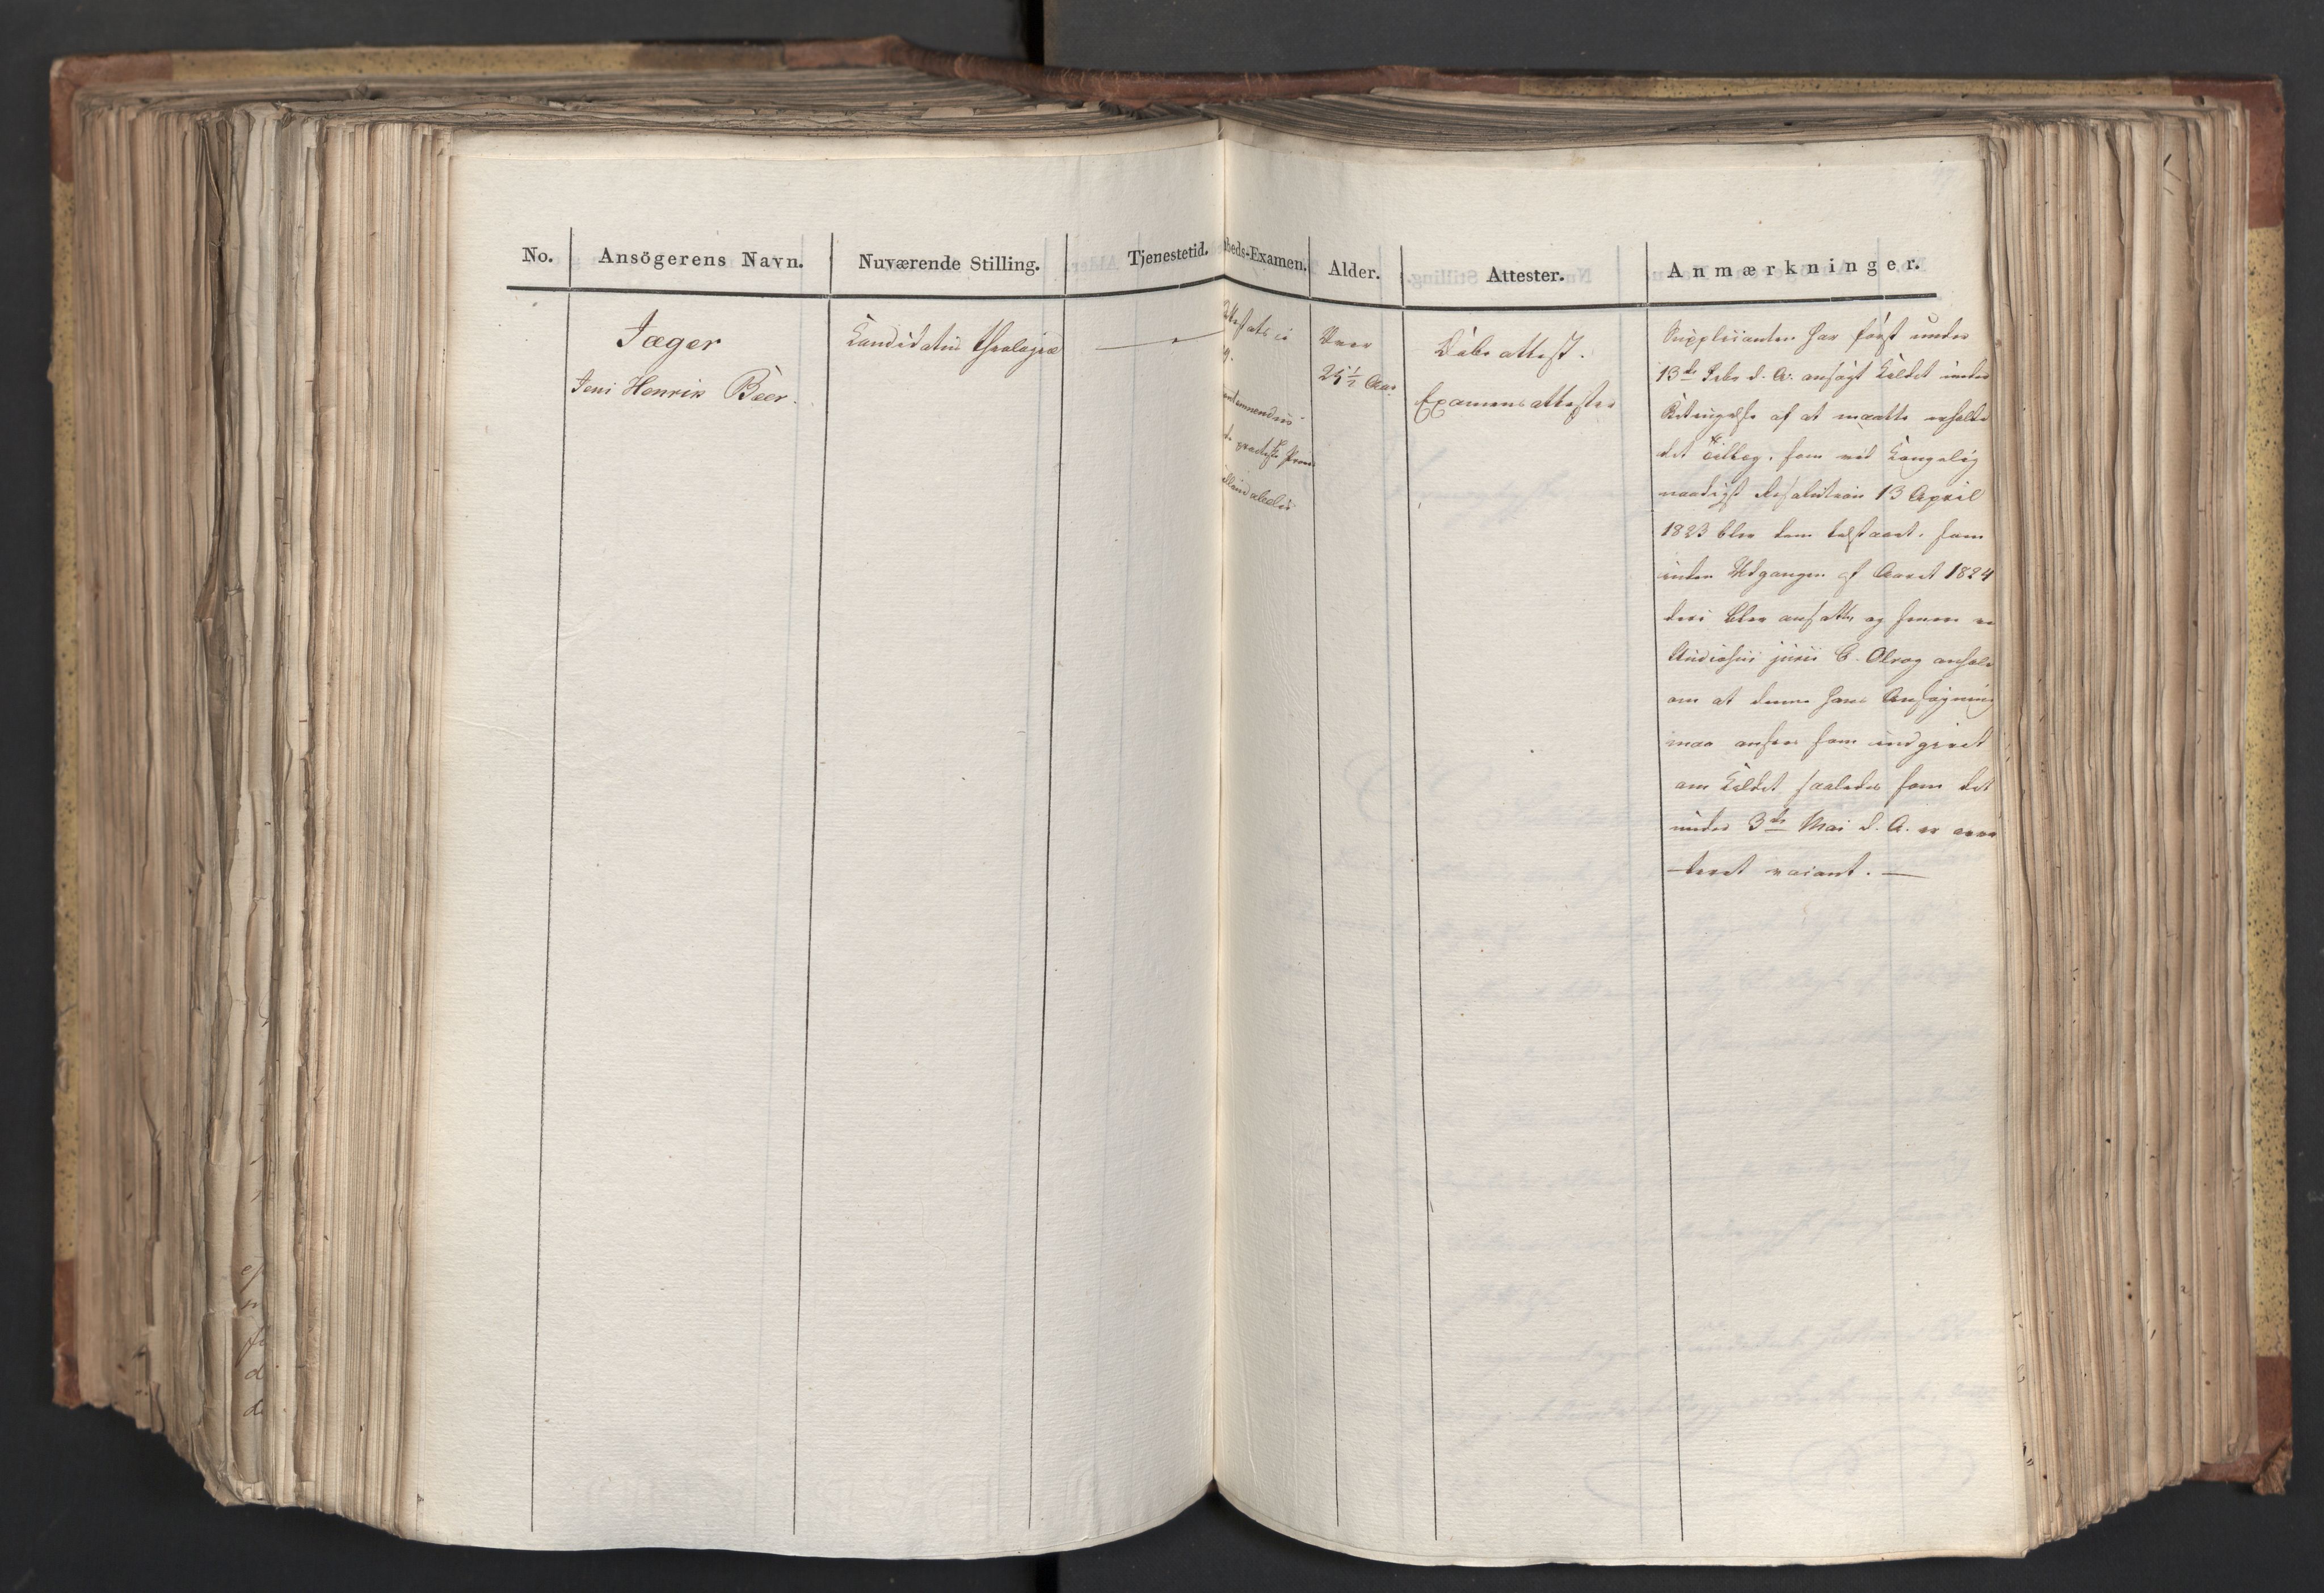 No.
Ansögerens Navn.
Nuværende Stilling.
Tjenestetid.
heds-Examen.
Alder.
Attester.
Anmærkninger.
Jæger
Jens Henrik Beer.
Kandidatus theologiæ
Attestats i
contemnendus
practiske Prøve
illaudabilis
Over
25½ Aar.
Døbeattest.
Examensattester
Supplicanten har først under
13de Febr d. A. ansøgt Kaldet under
Betingelse af at maatte erholde
det Tillæg, som ved Kongelig
naadigst Resolution 13 April
1823 blev dem tilstaaet, som
inden Udgangen af Aaret 1824
der blev ansatte, og senere ved
Studiosus juris C. Olrog anholdt
om at denne hans Ansøgning
maa ansees som indgivet
om Kaldet saaledes som det
under 3de Mai d. A. er aver
-teret vacant. —